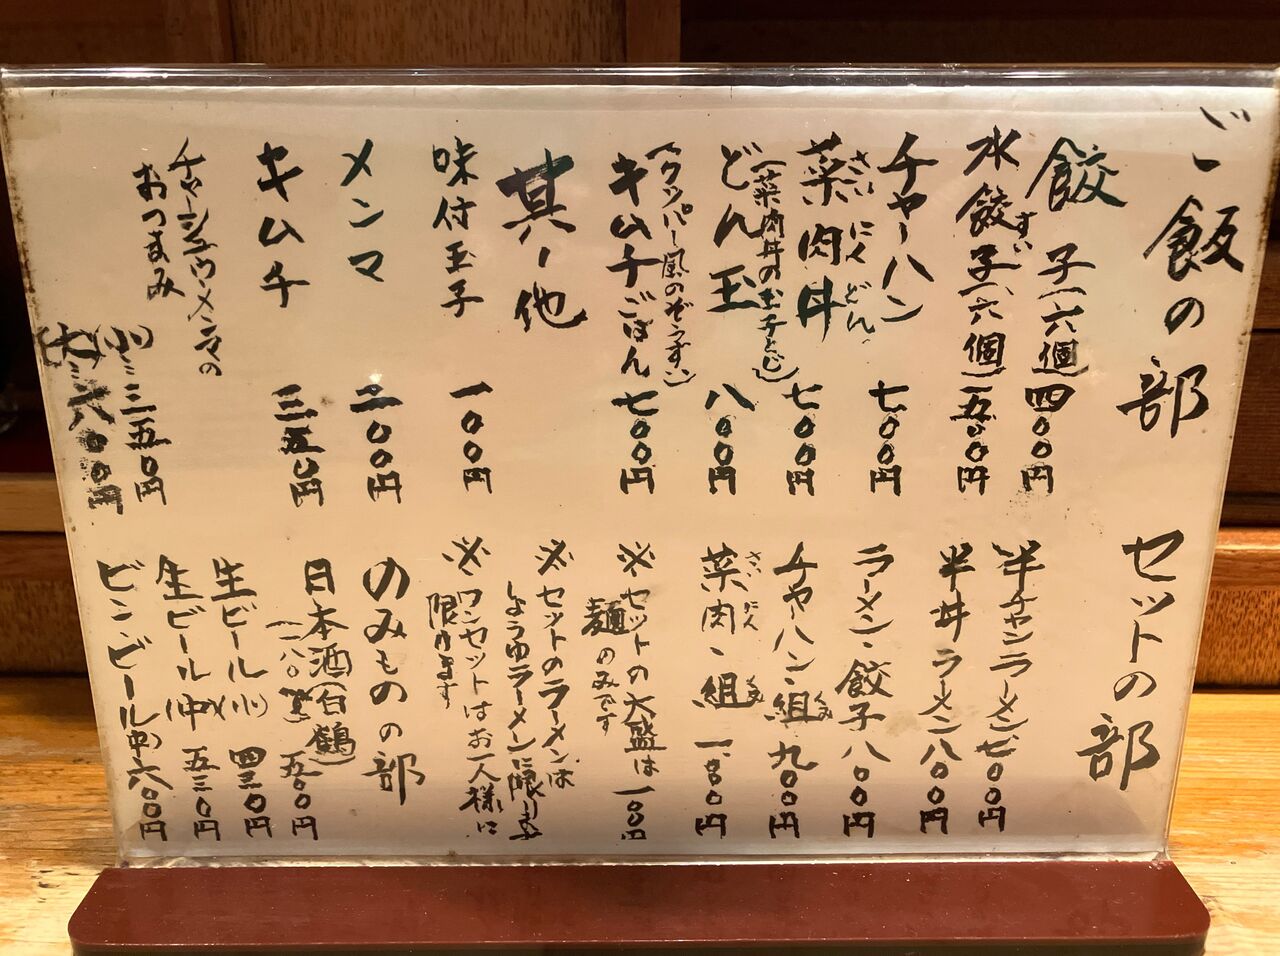 ご飯の部
餃子(六個) 四〇〇円
水餃子(六個) 五〇〇円
すい
チャーハン 七〇〇円
菜肉丼 七〇〇円
さいにくどん
(菜肉丼の玉子とじ)
どん玉 八〇〇円
(クッパー風のぞうすい)
キムチごはん 七〇〇円
其ノ他
味付玉子 一〇〇円
メンマ 二〇〇円
キムチ 三五〇円
チャーシュウ・メンマの
おつまみ
(小)…三五〇円
(大)…六〇〇円
セットの部
半チャンラーメン 七〇〇円
半丼ラーメン 八〇〇円
ラーメン・餃子 八〇〇円
チャーハン・組 九〇〇円
くみ
菜肉・組 一、〇〇〇円
さいにくくみ
※セットの大盛は 一〇〇円
麺のみです
※セットのラーメンは
しょうゆラーメンに限ります
※ワンセットはお一人様に
限ります
のみものの部
日本酒(白鶴)
(一八〇㎖) 五〇〇円
生ビール(小) 四三〇円
生ビール(中) 五三〇円
ビンビール(中) 六〇〇円